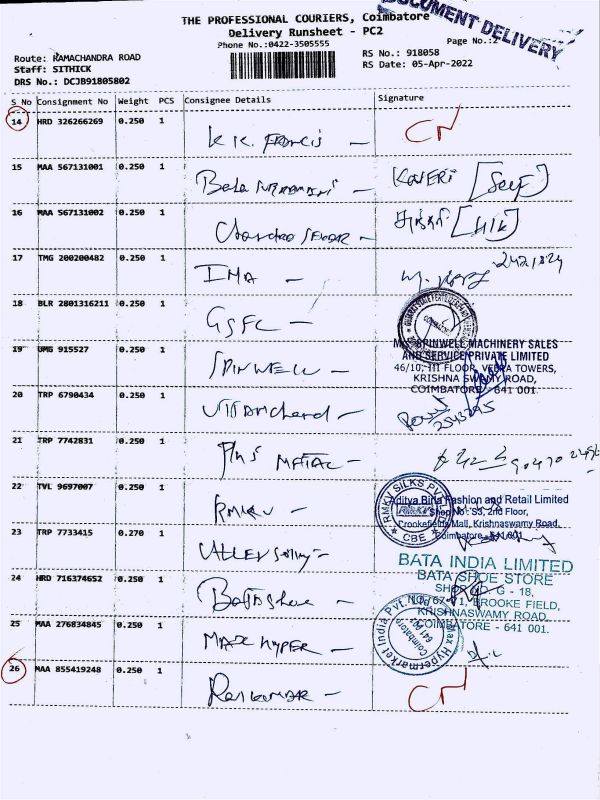 THE PROFESSIONAL COURIERS, Coimbatore
DOCUMENT DELIVERY
Delivery Runsheet - PC2
Phone No.:0422-3505555
Page No.:2
Route: RAMACHANDRA ROAD
RS No.: 918058
Staff: SITHICK
RS Date: 05-Apr-2022
DRS No.: DCJB91805802
S No Consignment No Weight PCS Consignee Details Signature
14 HRD 326266269 0.250 1 K.K. Francis - CN
15 MAA 567131001 0.250 1 KAVERI [Self]
16 MAA 567131002 0.250 1
17 TMG 200200482 0.250 1 IMA -
18 BLR 2801316211 0.250 1 GSFC -
19 GMG 915527 0.250 1 SPINWELL -
M/s. SPINWELL MACHINERY SALES
AND SERVICE PRIVATE LIMITED
46/10, III FLOOR, VEERA TOWERS,
KRISHNA SWAMY ROAD,
COIMBATORE - 641 001.
20 TRP 6790434 0.250 1
21 TRP 7742831 0.250 1
22 TVL 9697007 0.250 1 RMKV -
RMKV SILKS PVT LTD
RMKV
CBE
Aditya Birla Fashion and Retail Limited
Shop No: S3, 2nd Floor,
Brookefields Mall, Krishnaswamy Road,
Coimbatore - 641 001
23 TRP 7733415 0.270 1
BATA INDIA LIMITED
BATA SHOE STORE
SHOP NO. G - 18,
NO. 67-71, BROOKE FIELD,
KRISHNASWAMY ROAD,
COIMBATORE - 641 001.
24 HRD 716374652 0.250 1 Bata Shoe -
25 MAA 276834845 0.250 1 MAX HYPER -
Max Hypermarket India Pvt. Ltd.
Coimbatore
641 001
26 MAA 855419248 0.250 1 Raj Kumar - CN